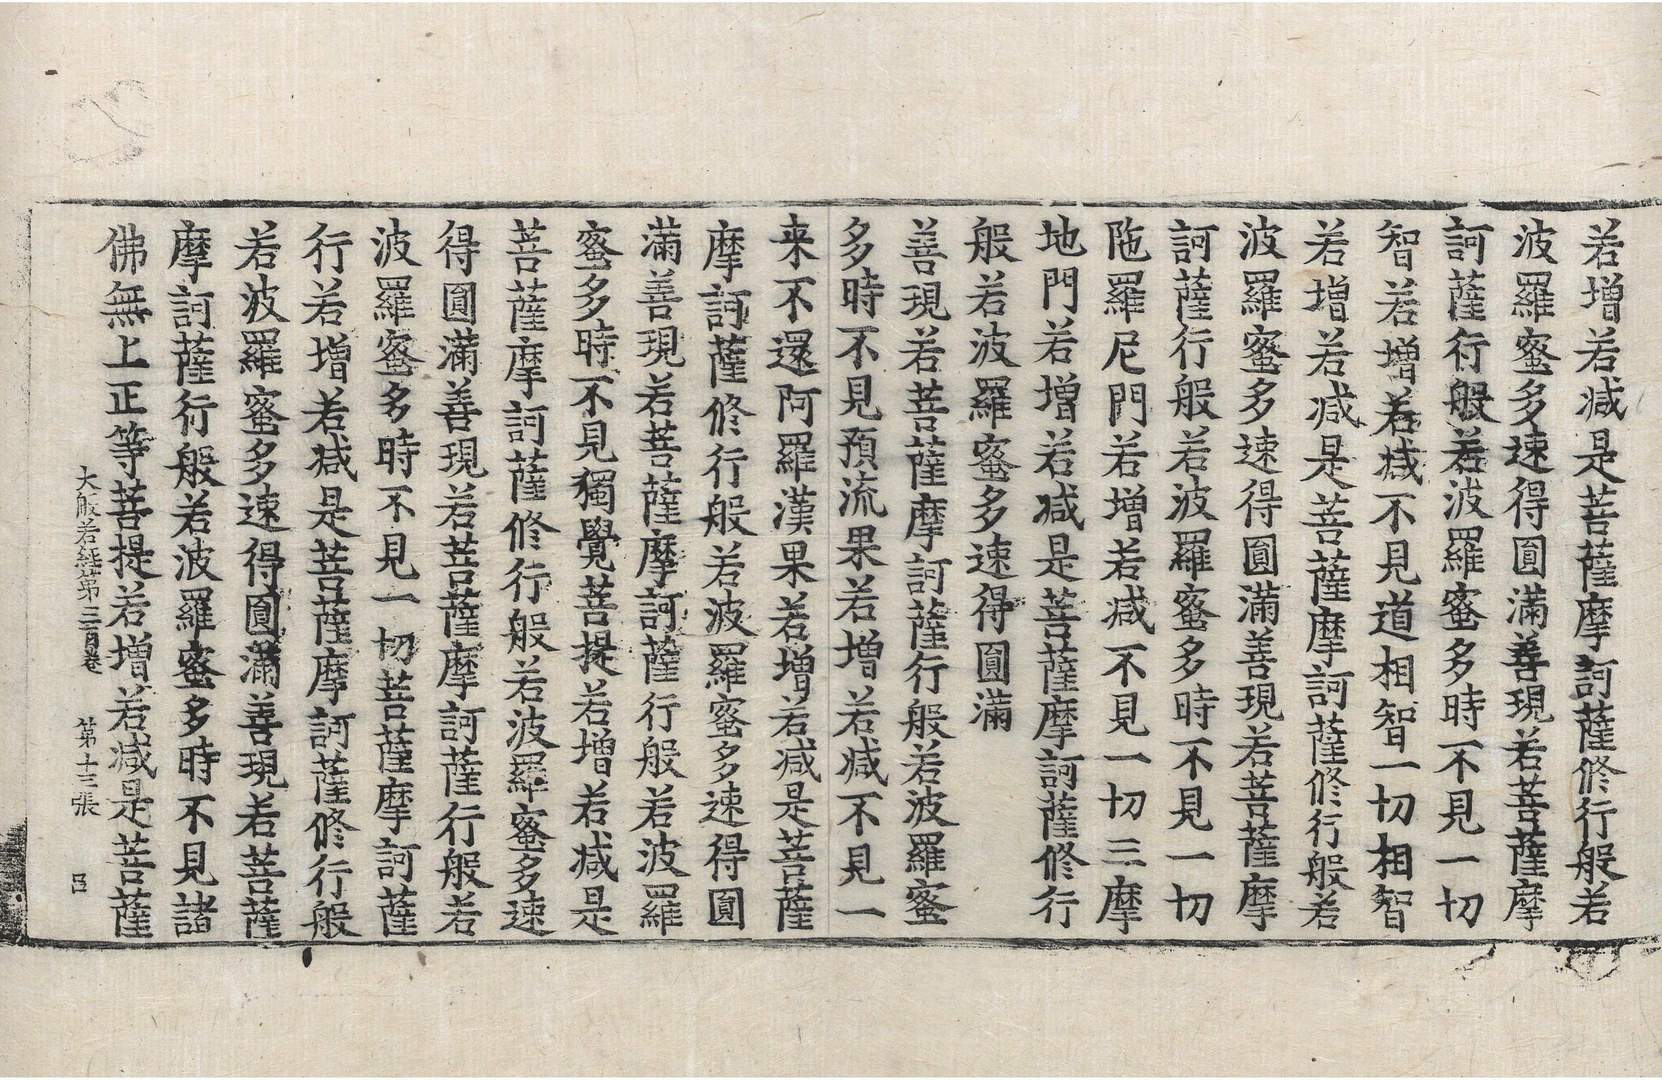 若增若減是菩薩摩訶薩修行般若
波羅蜜多速得圓滿善現若菩薩摩
訶薩行般若波羅蜜多時不見一切
智若增若減不見道相智一切相智
若增若減是菩薩摩訶薩修行般若
波羅蜜多速得圓滿善現若菩薩摩
訶薩行般若波羅蜜多時不見一切
陁羅尼門若增若減不見一切三摩
地門若增若減是菩薩摩訶薩修行
般若波羅蜜多速得圓滿
善現若菩薩摩訶薩行般若波羅蜜
多時不見預流果若增若減不見一
来不還阿羅漢果若增若減是菩薩
摩訶薩修行般若波羅蜜多速得圓
滿善現若菩薩摩訶薩行般若波羅
蜜多時不見獨覺菩提若增若減是
菩薩摩訶薩修行般若波羅蜜多速
得圓滿善現若菩薩摩訶薩行般若
波羅蜜多時不見一切菩薩摩訶薩
行若增若減是菩薩摩訶薩修行般
若波羅蜜多速得圓滿善現若菩薩
摩訶薩行般若波羅蜜多時不見諸
佛無上正等菩提若增若減是菩薩
大般若經第三百卷 第十三張 呂